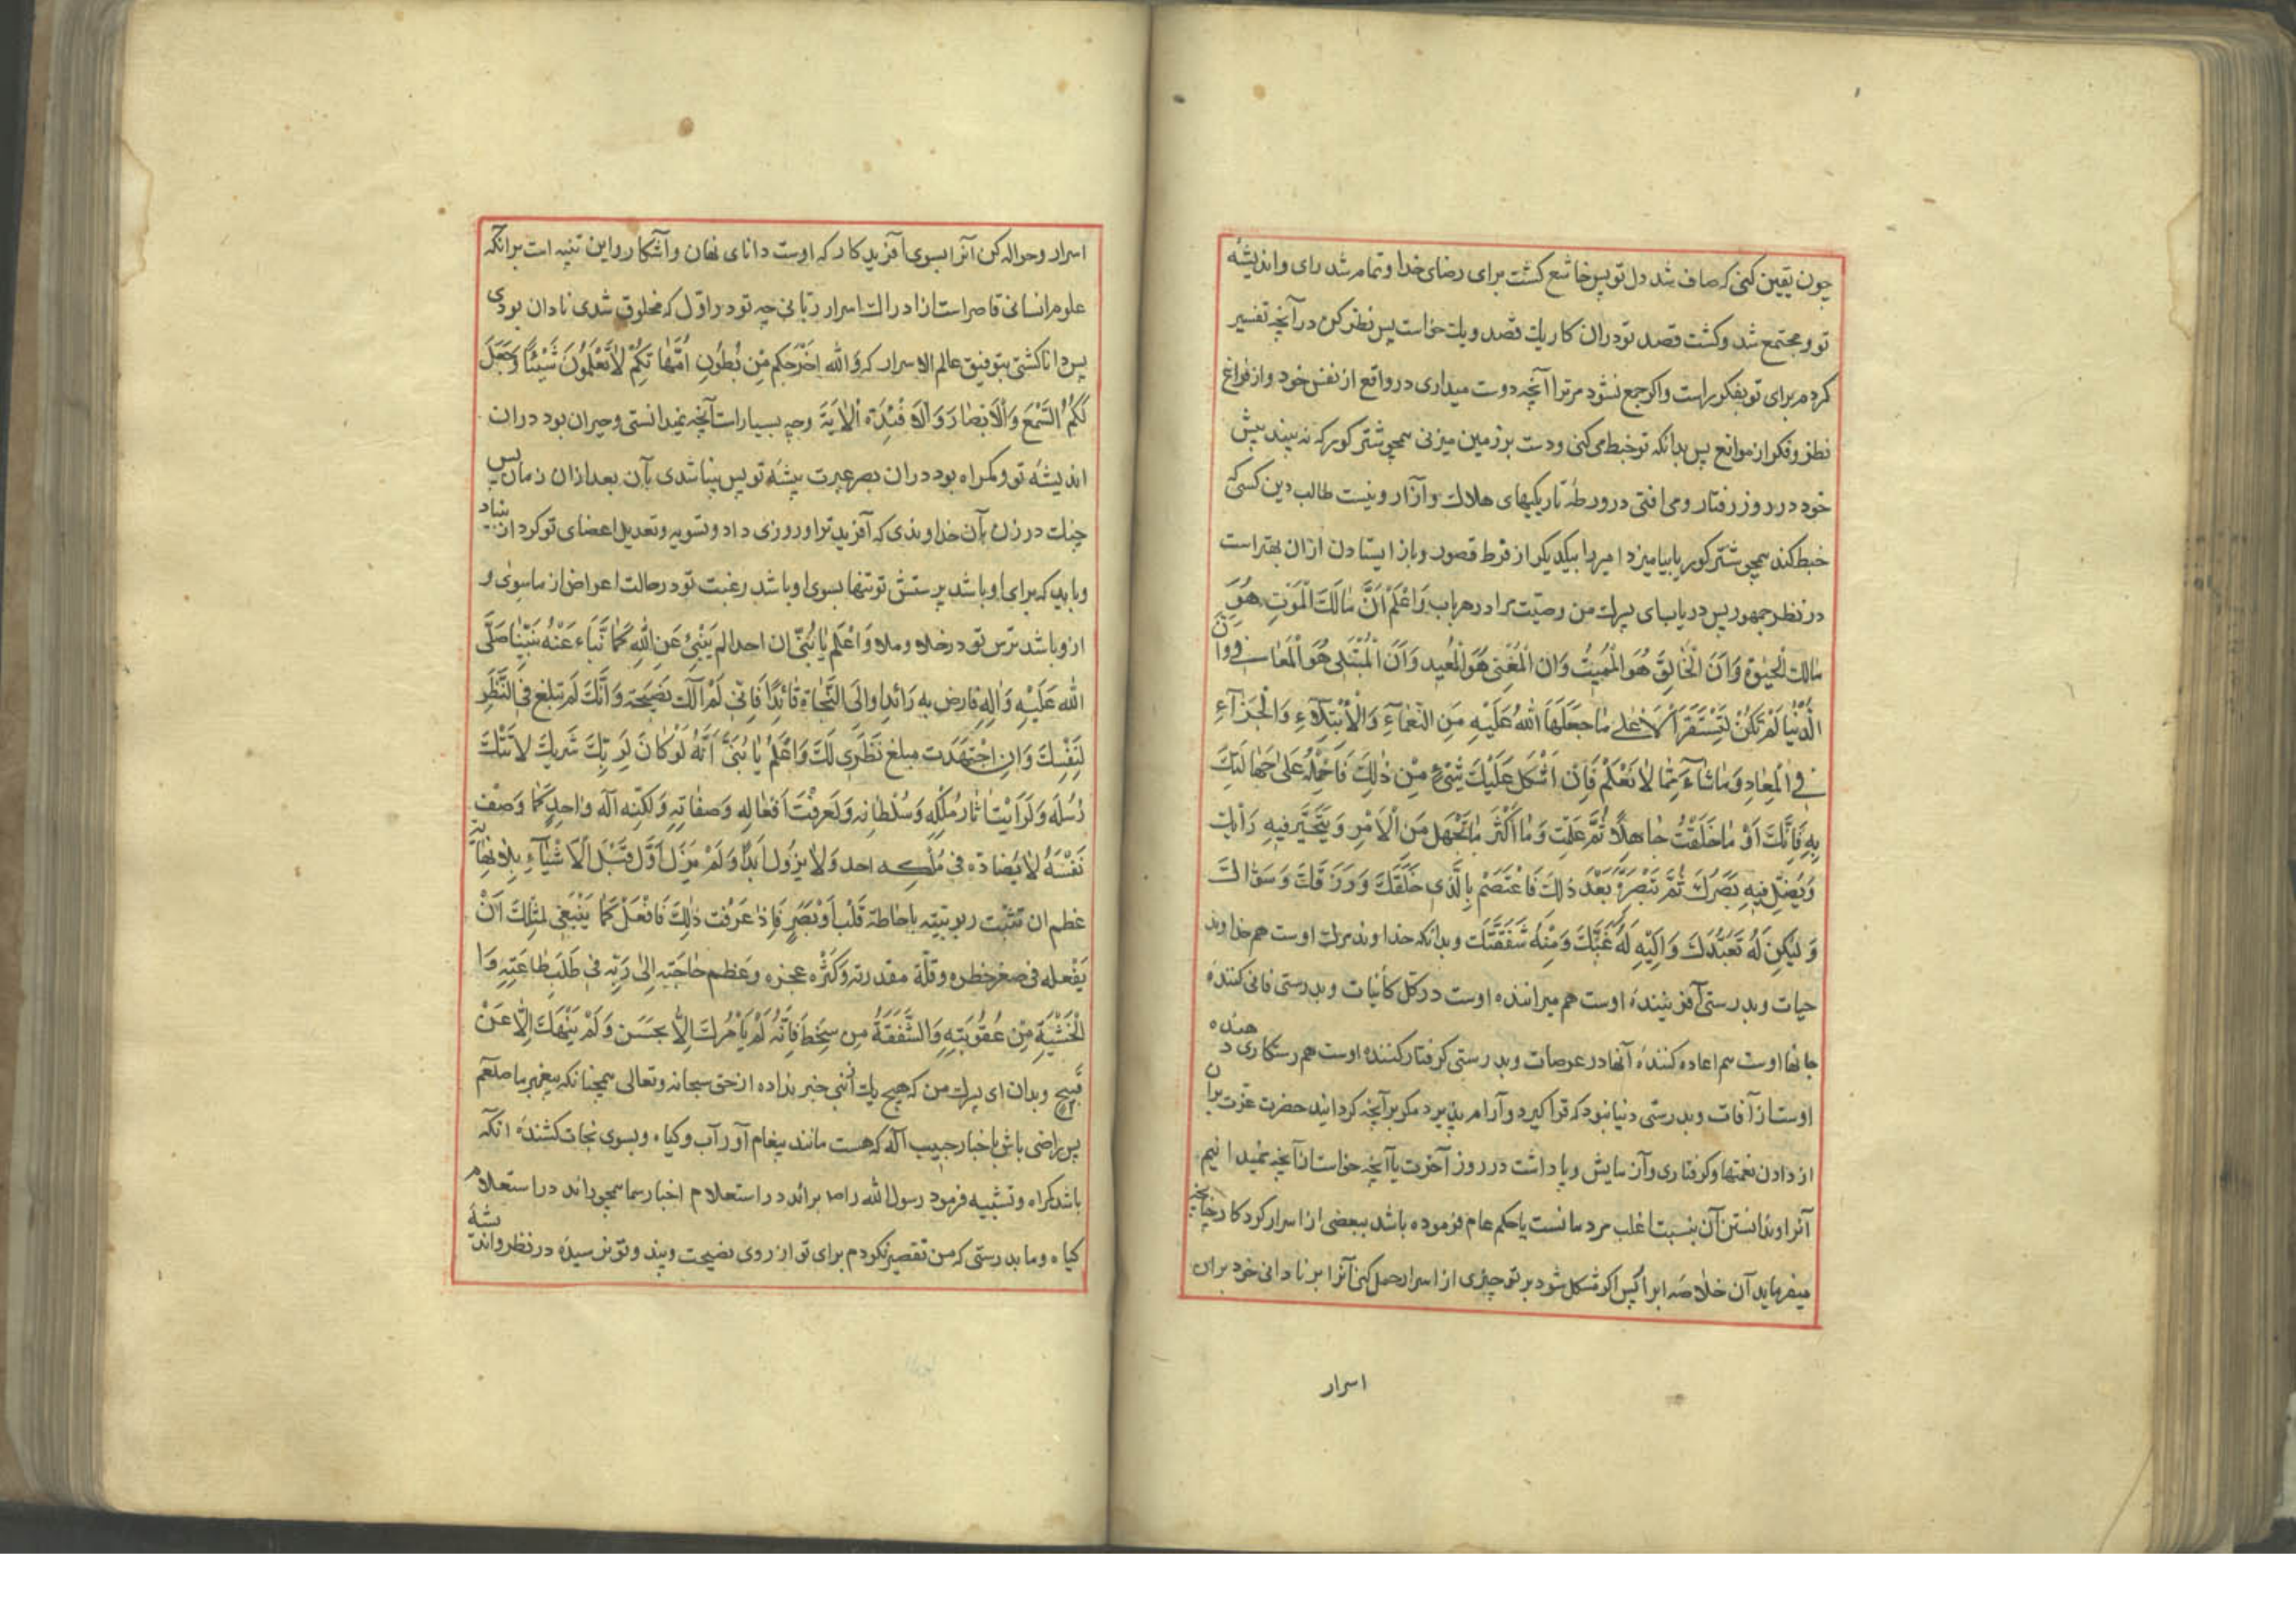 چون یقین کنی که صاف شد دل تو پس خاشع کشت برای رضای خدا و تمام شد رای و اندیشه
تو و مجتمع شد و کشت قصد تو در ان کار یك قصد و یك خواست پس نظر کن در آنچه تفسیر
کردم برای تو بفکر راست و اکر جمع نشود مر ترا آنچه دوست میداری در واقع از نفس خود و از فراغ
نظر و فکر از موانع پس بدانکه تو خبط می کنی و دست بر زمین میزنی همچو شتر کور که نه بیند پیش
خود در روز رفتار و می افتی در ورطهٔ تاریکیهای هلاك و آزار و نیست طالب دین کسی که
خبط کند همچو شتر کور یا بیامیزد امیر را بیکدیکر از فرط قصور و باز ایستادن ازان بهتر است
در نظر جمهور پس دریاب ای پسرك من وصیّت مرا در هر باب وَاعْلَمْ اَنَّ مٰالِكَ الْمَوْتِ هُوَ
مٰالِكُ الْحَیٰوةِ وَاَنَّ الْخٰالِقَ هُوَ الْمُمِیتُ وَان الْمُفْنِیَ هُوَ الْمُعِید وَاَنَّ الْمُبْتَلِی هُوَ الْمُعٰافِی وَ انَّ
الدُّنْیٰا لَمْ تَكُنْ لِتَسْتَقَرَّ اِلّٰا عَلیٰ مٰا جَعَلَهَا اللّٰهُ عَلَیْهِ مِنَ النَّعْمٰآءِ وَالْاِبْتِلٰآءِ وَالْجَزٰآءِ
فِی الْمِعٰادِ وَمٰا شٰآءَ مِمّٰا لٰا تَعْلَمْ فَاِنْ اَشْكَلَ عَلَیْكَ شَیْءٌ مِنْ ذٰلِكَ فَاحْمِلْهُ عَلیٰ جَهٰالَتِكَ
بِهِ فَاِنَّكَ اَوَّ مٰا خُلِقْتَ جٰاهِلًا ثُمَّ عَلِمْتَ وَ مٰا اَكْثَرَ مٰا تَجْهَل مِنَ الْاَمْرِ وَیَتَحَیَّر فِیهِ رَاْیُك
وَیَضِلُّ فِیهِ بَصَرُكَ ثُمَّ تُبْصِرُهُ بَعْدَ ذٰلِكَ فَاعْتَصِمْ بِالَّذِی خَلَقَكَ وَرَزَقَكَ وَسَوّٰاكَ
وَلْیَكُنْ لَهُ تَعَبُّدُكَ وَاِلَیْهِ رَغْبَتُكَ وَمِنْهُ شَفَقَتُكَ و بدانکه خداوند مرك اوست هم خداوند
حیات و بدرستی آفریننده اوست هم میراننده اوست در کل کائنات و بدرستی فانی کنندهٔ
جانها اوست هم اعاده کنندهٔ آنها در عرصات و بدرستی کرفتار کننده اوست هم رستکاری دهنده
اوست از آفات و بدرستی دنیا نبود که قرار کیرد و آرام پذیرد مکر بر آنچه کردانید حضرت عزت بران
از دادن نعمتها و کرفتاری و آزمایش و پاداشت در روز آخرت یا آنچه خواست از آنچه نمیدانیم
آنرا و ندانستن آن بنسبت اغلب مردمانست یا حکم عام فرموده باشد ببعضی از اسرار کردکار چنانچه
میفرماید آن خلاصهٔ ابرار پس اکر مشکل شود بر تو چیزی از اسرار حمل کن آنرا بر نادانی خود بران
اسرار
اسرار و حواله کن آنرا بسوی آفریدکار که اوست دانای نهان و آشکار و این تنبیه است برانکه
علوم انسانی قاصر است از ادراك اسرار ربّانی چه تو در اوّل که مخلوق شدی نادان بودی
پس دانا کشتی بتوفیق عالم الاسرار که وَاللّٰه اَخْرَجَكُم مِّن بُطُونِ اُمَّهٰاتِكُمْ لٰا تَعْلَمُونَ شَیْئًا وَجَعَلَ
لَكُمُ السَّمْعَ وَالْاَبْصٰارَ وَالْاَفْئِدَة اَلْاٰیَةَ و چه بسیار است آنچه نمیدانستی و حیران بود دران
اندیشهٔ تو و کمراه بود دران بصر عبرت پیشهٔ تو پس بینا شدی بآن بعد ازان زمان پس
چنك در زن بآن خداوندی که آفرید ترا و روزی داد و تسویه و تعدیل اعضای تو کرد از بنیاد
و باید که برای او باشد پرستش تو تنها بسوی او باشد رغبت تو در حالت اعراض از ماسوی و
ازو باشد ترس تو در خلاء و ملاء وَاعْلَم یٰا بُنَیَّ ان احدا لم یَنْبِئْ عَنِ اللّٰهِ كَمٰا نَبَّاءَ عَنْهُ نَبِیُّنٰا صَلَّی
اللّٰه عَلَیْهِ وَاٰلِهِ فارض بِه رَائدا وَالَی النَّجٰاةِ قٰائِدًا فَاِنِّی لَمْ اٰلُكَ نَصِیحَة وَاَنَّكَ لَم تبلغ فِی النَّظَرِ
لِنَفْسِكَ وَان اجْتَهَدْت مبلغ نَظَرِی لَكَ وَاعْلَمْ یٰا بُنَیَّ اَنَّهُ لَوْ كٰانَ لِرَبِّكَ شَرِیك لَاَتَتْكَ
رُسُلُه وَلَرَاَیْتَ اٰثٰار مُلْكِه وَسُلْطٰانِه وَلَعَرَفْتَ اَفْعٰالَه وَصفٰاتِه وَلٰكِنَّه اِلٰه وٰاحِد كَمٰا وَصَفَ
نَفْسَهُ لٰا یُضٰادّه فی مُلْكِه احد وَلٰا یزُول اَبَدًا وَلَمْ یَزَلْ اَوَّل قَبْلَ الْاَشْیٰآءِ بِلٰا نِهٰایَة
عَظم ان تثبت ربوبیّته باحٰاطة قَلْب اَوْ بَصَر فَاِذٰا عَرَفْت ذٰلِكَ فَافْعَلْ كَمٰا یَنْبَغِی لمثلك اَنْ
یَفْعَله فی صغر خطره و قلّة مقدرته وَكَثْرَةِ عجزه وعَظیم حٰاجَتِه اِلیٰ رَبِّه فی طَلَب طٰاعَتِهِ وَا
لْخَشْیَةِ مِنْ عُقُوبَتِهِ وَالشَّفَقَةِ مِن سخطه فَاِنَّهُ لَمْ یَاْمُرْكَ اِلّٰا بحَسَن وَلَمْ یَنْهَكَ اِلّٰا عَنْ
قَبِیح و بدان ای پسرك من که هیچ یك خبر نداده از حق سبحانه و تعالی همچنانکه پیغمبر ما صلعم
پس راضی باش باخبار حبیب آله که هست مانند پیغام آور آب و کیاه و بسوی نجات کشندهٔ انکه
باشد کمراه و تشبیه فرمود رسول الله را ص برائد در استعلام اخبار سما همچو رائد در استعلام
کیاه و ما بدرستی که من تقصیر نکردم برای تو از روی نصیحت و پند و تو نرسیدهٔ در نظر و اندیشهٔ